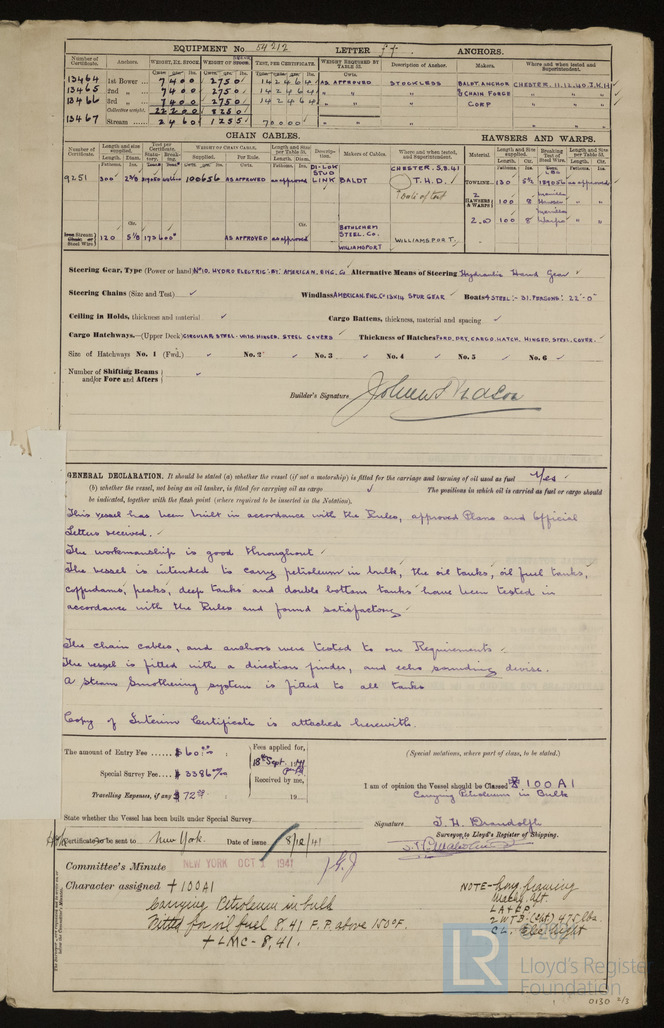 EQUIPMENT No 54212 LETTER ff. ANCHORS.
Number of Certificate. Anchors. WEIGHT, EX. STOCK. WEIGHT OF STOCK. TEST, PER CERTIFICATE. WEIGHT REQUIRED BY TABLE 31. Description of Anchor. Makers. Where and when tested and Superintendent.
13464 1st Bower 7400 2750 142464 AS APPROVED STOCKLESS BALDT ANCHOR CHESTER. 11.12.40. J.K.H
13465 2nd „ 7400 2750 142464 „ „ & CHAIN FORGE „ „
13466 3rd „ 7400 2750 142464 „ „ CORP „ „
Collective weight. 22200 8250
13467 Stream 2460 1255 70000 „ „
CHAIN CABLES. HAWSERS AND WARPS.
Number of Certificate. Length and size supplied. Test per Certificate. WEIGHT OF CHAIN CABLE. Length and Size per Table 31. Description. Makers of Cables. Where and when tested, and Superintendent. Material. Length and Size supplied. Breaking Test of Steel Wire. Length and Size per Table 31.
9251 300 2⅝ 100656 AS APPROVED as approved DI-LOK STUD LINK BALDT CHESTER. 5.8.41 T.H.D. TOWLINE 130 5½ as approved
Date of test
2 HAWSERS & WARPS 100 8 Manilla
2.00 100 8 Manilla
Steel Wire 120 5⅛ AS APPROVED as approved BETHLEHEM STEEL. Co. WILLIAMSPORT WILLIAMSPORT.
Steering Gear, Type (Power or hand) No 10. HYDRO ELECTRIC. BY. AMERICAN. ENG. Co Alternative Means of Steering Hydraulic Hand Gear
Steering Chains (Size and Test) Windlass AMERICAN. ENG. Co 13x14 SPUR GEAR Boats 4 STEEL:- 31. PERSONS: 22'-0"
Ceiling in Holds, thickness and material Cargo Battens, thickness, material and spacing
Cargo Hatchways.—(Upper Deck) CIRCULAR. STEEL. WITH. HINGED. STEEL COVERS Thickness of Hatches FORD. DRY. CARGO. HATCH. HINGED. STEEL. COVER.
Size of Hatchways No. 1 (Fwd.) No. 2 No. 3 No. 4 No. 5 No. 6
Number of Shifting Beams and/or Fore and Afters
Builder's Signature
GENERAL DECLARATION. It should be stated (a) whether the vessel (if not a motorship) is fitted for the carriage and burning of oil used as fuel Yes
(b) whether the vessel, not being an oil tanker, is fitted for carrying oil as cargo The positions in which oil is carried as fuel or cargo should
be indicated, together with the flash point (where required to be inserted in the Notation).
This vessel has been built in accordance with the Rules, approved Plans and Official
Letters received.
The workmanship is good throughout
The vessel is intended to carry petroleum in bulk, the oil tanks, oil fuel tanks,
cofferdams, peaks, deep tanks and double bottom tanks have been tested in
accordance with the Rules and found satisfactory
The chain cables, and anchors were tested to our Requirements
The vessel is fitted with a direction finder, and echo sounding devise.
A Steam Smothering system is fitted to all tanks
Copy of Interim Certificate is attached herewith.
The amount of Entry Fee ...... $ 60.00
Special Survey Fee.... $ 3386.00
Travelling Expenses, if any $ 72.00
Fees applied for, 18th Sept. 1941
Received by me, 19
(Special notations, where part of class, to be stated.)
I am of opinion the Vessel should be Classed ✠ 100 A1
Carrying Petroleum in Bulk
State whether the Vessel has been built under Special Survey
Signature J. H. Drandolph
Surveyor to Lloyd's Register of Shipping.
Certificate to be sent to New York. Date of issue 8/12/41
Committee's Minute NEW YORK OCT 1 1941
Character assigned + 100A1
Carrying Petroleum in bulk
Fitted for oil fuel 8.41 F.P. above 150°F.
+ LMC - 8.41.
NOTE - Long framing
Mach. Aft.
2 WTB (Spt) 475 lbs
CL. Elec light
LR
Lloyd's Register
Foundation
0130 2/3